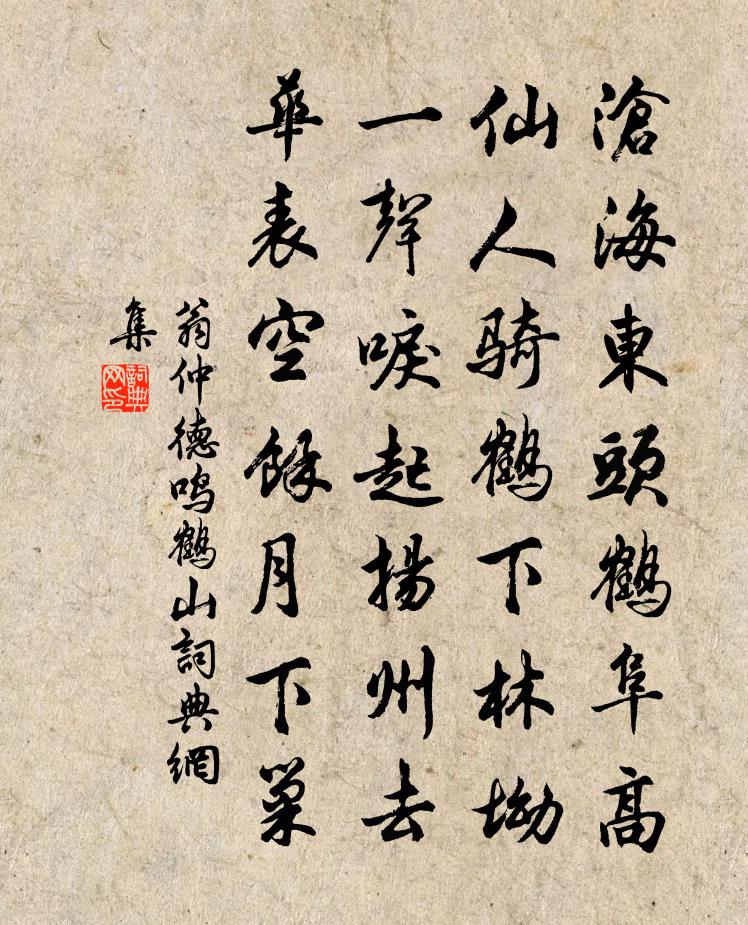 滄海東頭鶴阜高
仙人騎鶴下林坳
一聲唳起揚州去
華表空餘月下巢
翁仲德鳴鶴山詞典網
集
詞典網印